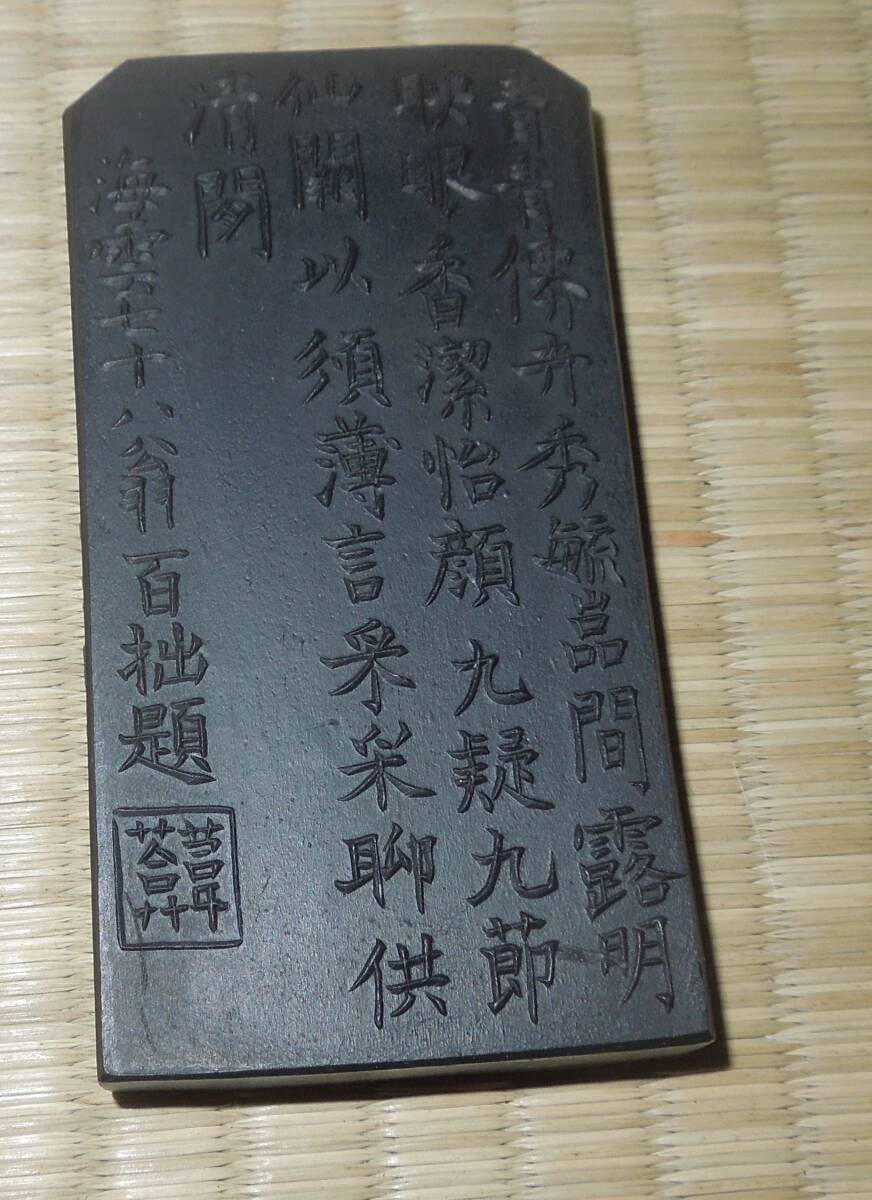 青青儞卉秀毓嵒間露明
映眼香潔怡顏九疑九節
仙關以須薄言采采聊供
清閟
海雲七十八翁百拙題